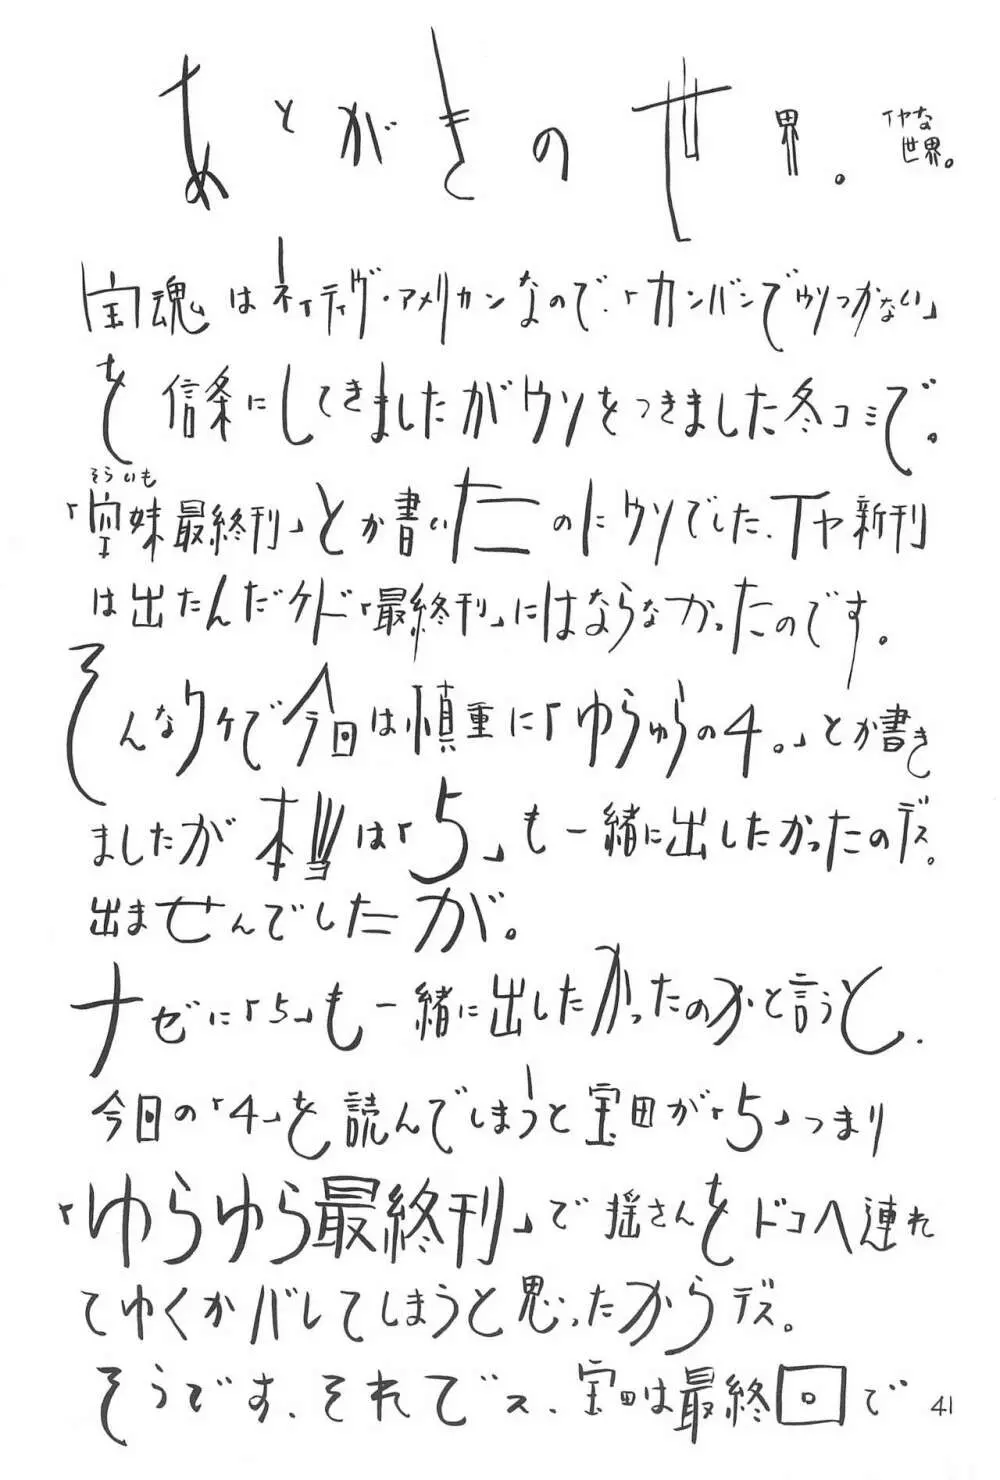 あとがきの世界。
イヤな
世界。
宝魂はネイティヴ・アメリカンなので、「カンバンでウソつかない」
を信条にしてきましたがウソをつきました冬コミで。
そういも
「空妹最終刊」とか書いたのにウソでした、イヤ新刊
は出たんだケド「最終刊」にはならなかったのです。
そんなワケで今回は慎重に「ゆらゆらの4。」とか書き
ましたが本当は「5」も一緒に出したかったのデス。
出ませんでしたが。
ナゼに「5」も一緒に出したかったのかと言うと、
今回の「4」を読んでしまうと宝田が「5」つまり
「ゆらゆら最終刊」で揺さんをドコへ連れ
てゆくかバレてしまうと思ったからデス。
そうです、それでス、宝田は最終回で
41